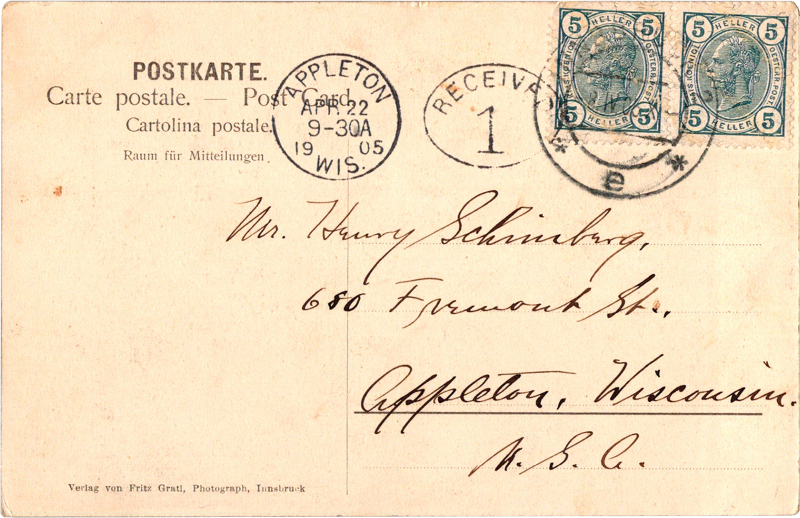 POSTKARTE.
Carte postale. — Post Card.
Cartolina postale.
Raum für Mitteilungen.
APPLETON
APR. 22
9-30A
19 05
WIS.
RECEIVED
1
5 HELLER 5
5 HELLER 5
5 HELLER 5
5 HELLER 5
e
Mr. Henry Schimberg,
680 Fremont St.,
Appleton, Wisconsin.
U. S. A.
Verlag von Fritz Gratl, Photograph, Innsbruck